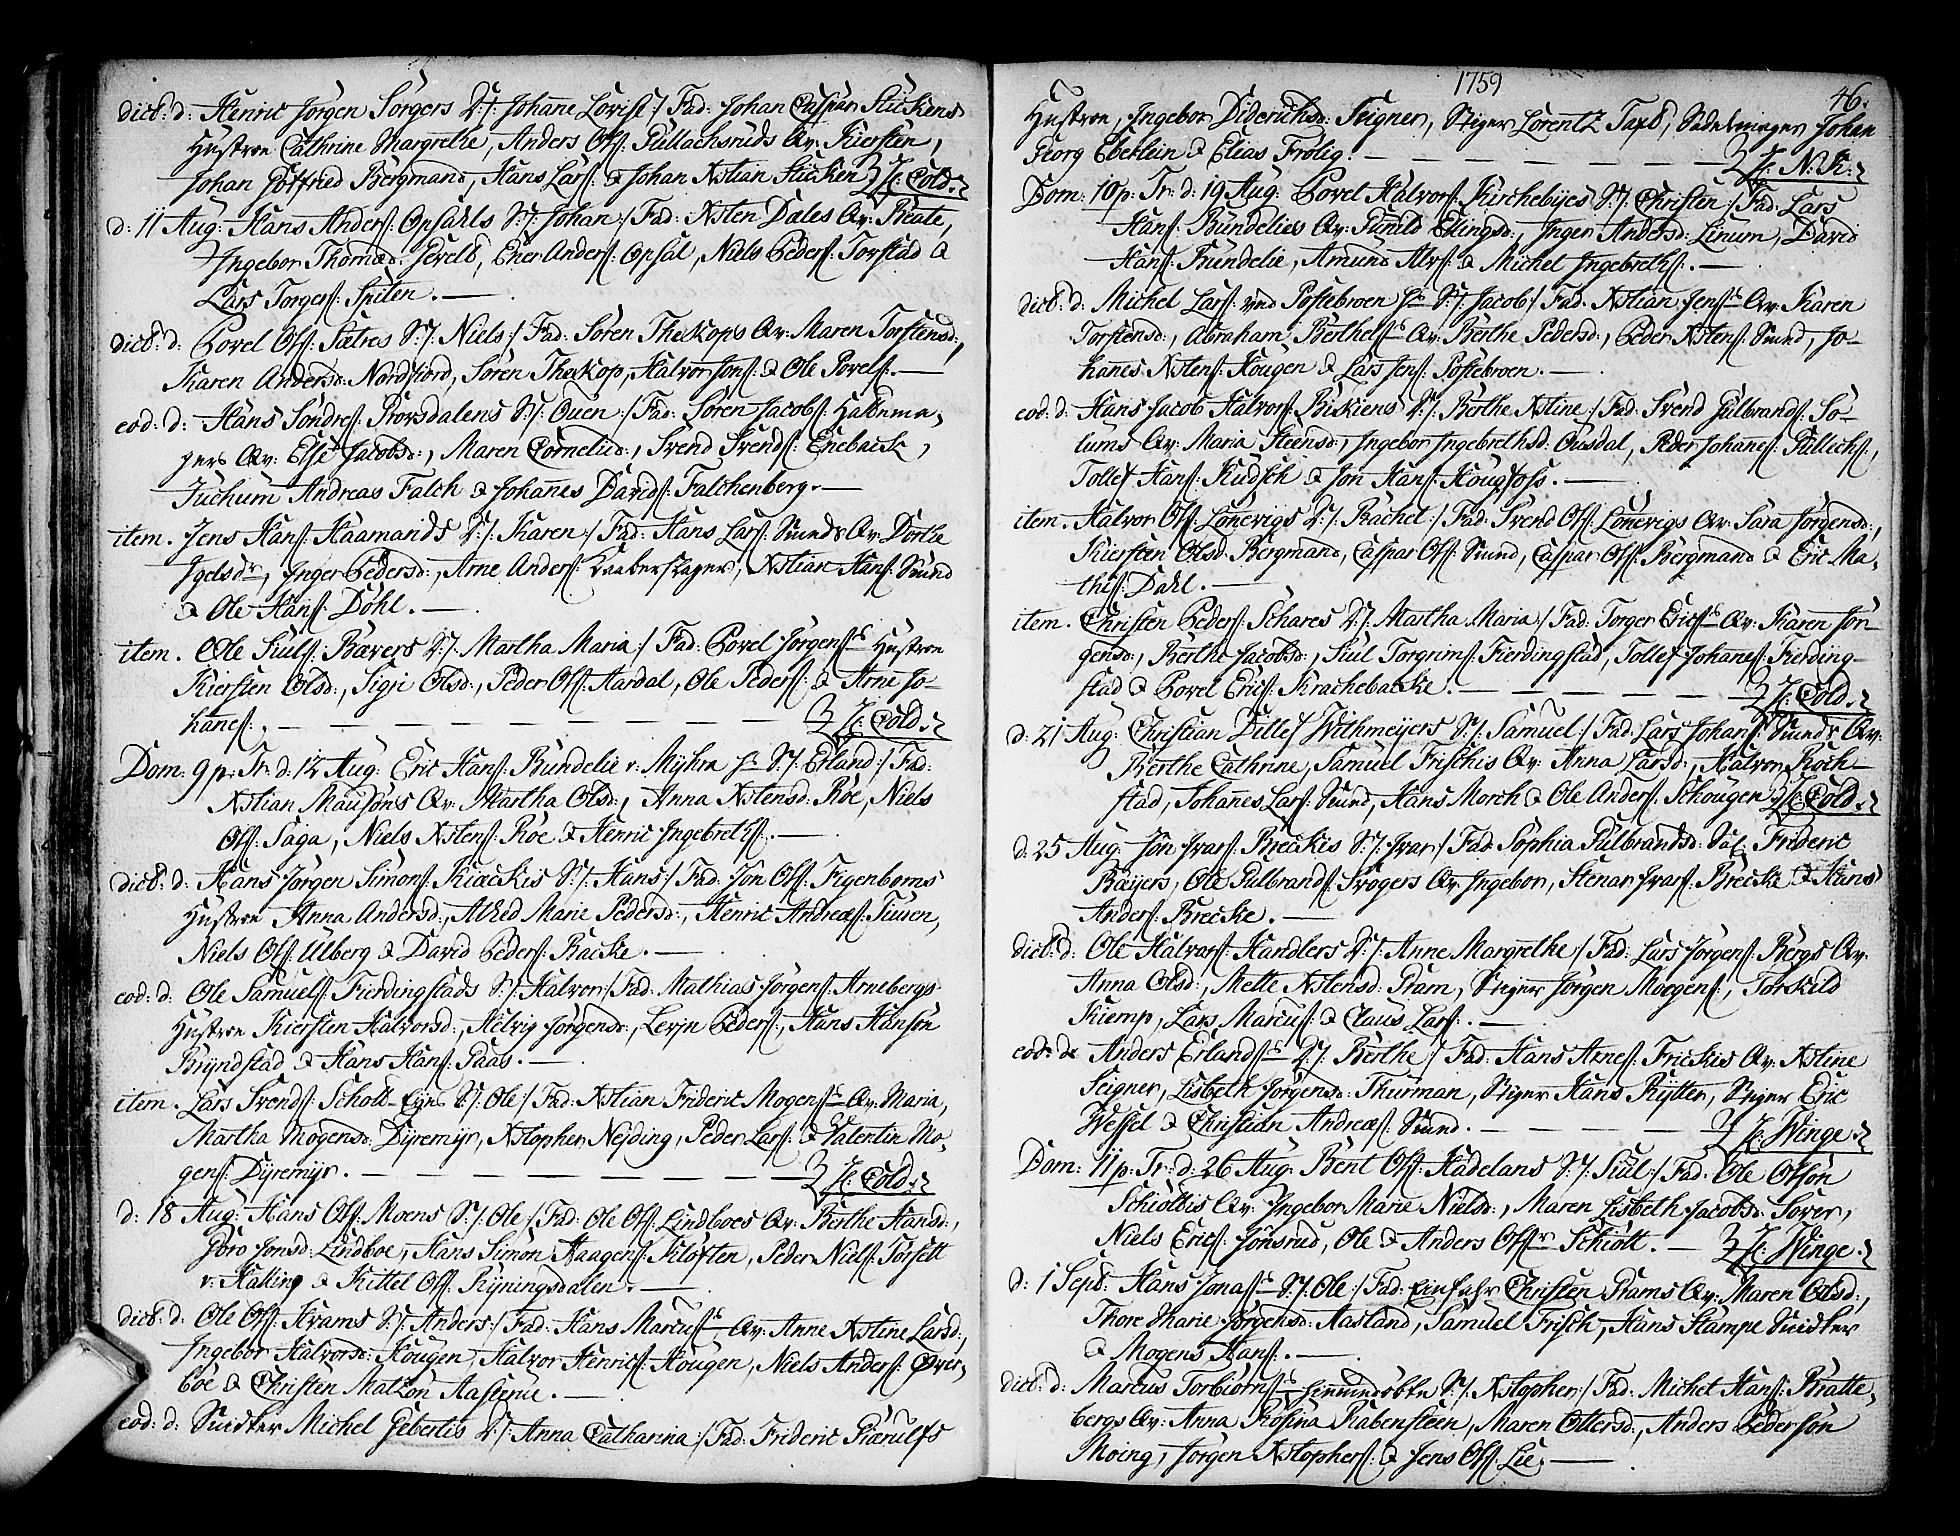 dict: d: Henric Jörgen Sörgers D:/: Johañe Lovise :/ Fad: Johan Caspar Stückens
Hustroe Cathrine Margrethe, Anders Olſ: Gullachsruds Qv: Kiersten,
Johan Gottfried Bergmand, Hans Larſ: & Johan Xstian Stücken } H: Cold.
d: 11 Aug: Hans Anderſ: Opsahls S:/: Johan :/ Fad: Xsten Dales Qv: Beate,
Ingebor Thomæd: Jevels, Ener Anderſ: Opsal, Niels Pederſ: Torstad &
Lars Torgerſ: Spiten. —
dict: d: Povel Olſ: Sætres S:/: Niels :/ Fad: Sören Theskops Qv: Maren Torstensd:,
Karen Andersd: Nordfiord, Sören Theskop, Halvor Jonſ: & Ole Povelſ. —
eod: d: Hans Söndreſ: Prorsdalens S:/: Ouen :/ Fad: Sören Jacobſ: Hattemagers
Qv: Else Jacobsd:, Maren Cornelid:, Svend Svendſ: Eneback,
Juchum Andreas Falch & Johanes Davidſ: Falchenberg. —
item. Jens Hanſ: Haamands D:/: Karen :/ Fad: Hans Larſ: Smeds Qv: Dorthe
Igelsdr, Inger Pedersd:, Arne Anderſ: Kaaberslager, Xstian Hanſ: Smed
& Ole Hanſ: Döhl. —
item. Ole Siulſ: Bævers D:/: Martha Maria :/ Fad: Povel Jörgenſs Hustroe
Kiersten Olsd:, Sigri Olsd:, Peder Olſ: Aardal, Ole Pederſ: & Arne Johaneſ:
— — — } H: Cold.
Dom: 9 p: Tr: d: 12 Aug: Eric Hanſ: Bundelie v: Myhra S:/: Erland :/ Fad:
Xstian Mausöns Qv: Martha Olsd:, Anna Xstensd: Röe, Niels
Olſ: Saga, Niels Xstenſ: Röe & Henric Ingebrethſ. —
dict: d: Hans Jörgen Simonſ: Kiæckis S:/: Hans :/ Fad: Jon Olſ: Figenboms
Hustroe Anna Andersd:, Alhed Marie Pedersd:, Henric Andreæſ: Tuuen,
Niels Olſ: Ulberg & David Pederſ: Backe. —
eod: d: Ole Samuelſ: Fierdingstads S:/: Halvor :/ Fad: Mathias Jörgenſ: Arnebergs
Hustroe Kiersten Halvorsd:, Helvig Jörgensd:, Levjn Pederſ:, Hans Hansön
Bryndstad & Hans Hanſ: Paas. —
item. Lars Svendſ: Schott-Eyes S:/: Ole :/ Fad: Xstian Frideric Mogenſs Qv: Maria,
Martha Mogensd: Dyremyr, Xstopher Neyding, Peder Larſ: & Valentin Mogenſ:
Dyremyr. — — — } H: Cold.
d: 18 Aug: Hans Olſ: Moens S:/: Ole :/ Fad: Ole Olſ: Lindboes Qv: Berthe Hansd:,
Göro Jonsd: Lindboe, Hans Simon Haagenſ: Klöften, Peder Nielſ: Torsett
v: Halling & Kittel Olſ: Ryningsdalen. —
dict: d: Ole Olſ: Hvams S:/: Anders :/ Fad: Hans Marcuſs Qv: Anne Xstine Larsd:,
Ingebor Halvorsd: Hougen, Halvor Henricſ: Hougen, Niels Anderſ: Overböe
& Christen Matzön Aasterue. —
eod: d: Smelter Michel Gebertis D:/: Anna Catharina :/ Fad: Frideric Piærulfs
1759
46.
Hustroe, Ingebor Didrichsd: Seigner, Stiger Lorentz Tax8, Sadelmager Johan
Georg Eberlein & Elias Frölig. — — — } H: N: K:
Dom: 10 p: Tr: d: 19 Aug: Povel Halvorſ: Kirchebyes S:/: Christen :/ Fad: Lars
Hanſ: Bundelies Qv: Gunild Elingsd:, Inger Andersd: Linum, David
Hanſ: Bundelie, Amund Alvſ: & Michel Ingebrethſ. —
dict: d: Michel Larſ: ved Postebroen S:/: Jacob :/ Fad: Xstian Jenſs Qv: Karen
Torstensd:, Abraham Berthelſs Qv: Berthe Pedersd:, Peder Xstenſ: Smed, Johanes
Xstenſ: Hougen & Lars Jenſ: Postebroen. —
eod: d: Hans Jacob Halvorſ: Biskiens D:/: Berthe Xstine :/ Fad: Svend Gulbrandſ: Solums
Qv: Maria Steensd:, Ingebor Ingebrethsd: Ousdal, Peder Johaneſ: Gullichſ:,
Tollef Hanſ: Kudsch & Jon Hanſ: Hougfoss. —
item. Halvor Olſ: Lönevigs D:/: Rachel :/ Fad: Svend Olſ: Lönevigs Qv: Sara Jörgensd:,
Kiersten Olsd: Bergmand, Caspar Olſ: Smed, Caspar Olſ: Bergmand & Eric Mathiſ:
Dahl. —
item. Christen Pederſ: Schares D:/: Martha Maria :/ Fad: Torger Ericſs Qv: Karen Jörgensd:,
Berthe Jacobsd:, Siul Torgrimſ: Fierdingstad, Tollef Johaneſ: Fierdingstad
& Povel Ericſ: Krachebacke. — — — } H: Cold.
d: 21 Aug: Christian Ditlef Withmeyers S:/: Samuel :/ Fad: Lars Johanſ: Smeds Qv:
Berthe Cathrine, Samuel Frischis Qv: Anna Larsd:, Halvor Rochstad,
Johanes Larſ: Smed, Hans Morch & Ole Anderſ: Schougen } H: Cold.
d: 25 Aug: Jon Ivarſ: Breckis S:/: Ivar :/ Fad: Sophia Gulbrandsd: Sal: Frideric
Bæyers, Ole Gulbrandſ: Svogers Qv: Ingebor, Stenar Ivarſ: Brecke & Hans
Anderſ: Brecke. —
dict: d: Ole Halvorſ: Handlers D:/: Anne Margrethe :/ Fad: Lars Jörgenſ: Bergs Qv:
Anna Olsd:, Mette Xstensd: Pram, Stiger Jörgen Moegenſ:, Torskild
Kiemp, Lars Marcuſ: & Claus Larſ. —
eod: d: Anders Erlandſs D:/: Berthe :/ Fad: Hans Arneſ: Frickis Qv: Xstine
Seigner, Lisbeth Jörgensd: Thurman, Stiger Hans Rytter, Stiger Eric
Wessel & Christian Andreæſ: Smed. — — — } H: Winge.
Dom: 11 p: Tr: d: 26 Aug: Bent Olſ: Hadelans S:/: Siul :/ Fad: Ole Olsön
Schiöttis Qv: Ingebor Marie Nielsd:, Maren Lisbeth Jacobsd: Sover,
Niels Ericſ: Jonsrud, Ole & Anders Olſr Schiött. — } H: Winge.
d: 1 Sept: Hans Jonaſs S:/: Ole :/ Fad: Einfahr Christen Prams Qv: Maren Olsd:,
Thore Marie Jörgensd: Aasland, Samuel Frisch, Hans Stampe Smelter
& Mogens Hanſ. —
dict: d: Marcus Torbiörnſs S:/: Xstopher :/ Fad: Michel Hanſ: Brattebergs
Qv: Anna Rosina Rabensteen, Maren Ottersd:, Anders Pedersön
Moing, Jörgen Xstopherſ: & Jens Olſ: Lie. —